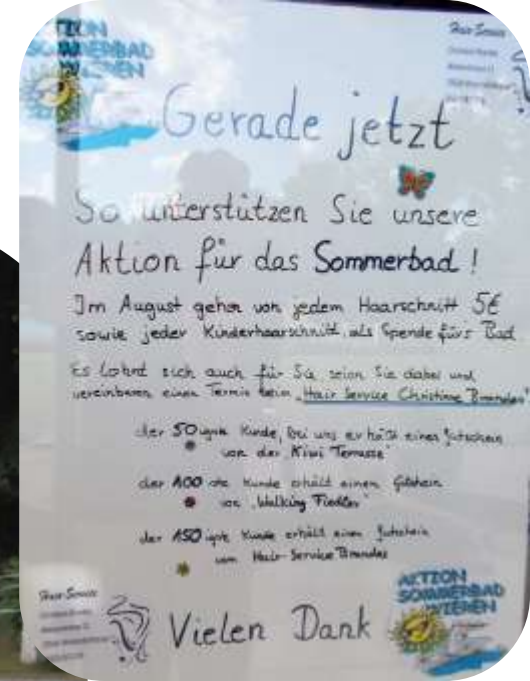 AKTION
SOMMERBAD
WIEREN
Hair-Service
Gerade jetzt
So unterstützen Sie unsere
Aktion für das Sommerbad !
Im August gehen von jedem Haarschnitt 5€
sowie jeder Kinderhaarschnitt als Spende fürs Bad
Es lohnt sich auch für Sie seien Sie dabei und
vereinbaren einen Termin beim „Hair Service Christine Brandes"
der 50igste Kunde, bei uns erhält einen Gutschein
von der „Kiwi Terrasse"
der 100 ste Kunde erhält einen Gutschein
von „Walking Fiedler"
der 150igste Kunde erhält einen Gutschein
vom Hair-Service Brandes
Hair-Service
Vielen Dank
AKTION
SOMMERBAD
WIEREN